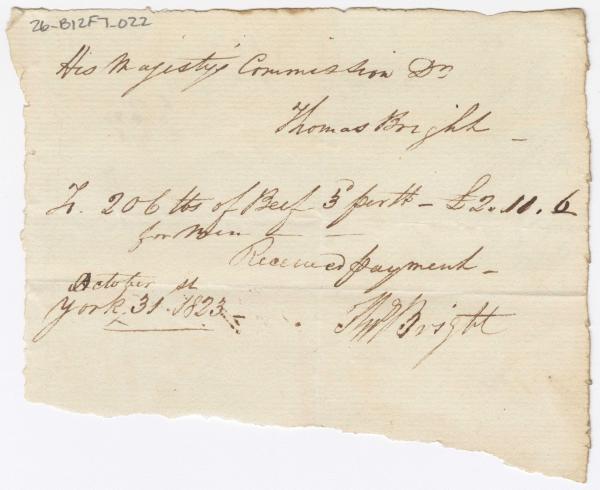 26-B12F7-022
His Majesty's Commission Dr
Thomas Bright
To. 206 lbs of Beef 3d per lb - £2.11.6
for Men
Received payment
October
York, 31st 1823
Thos Bright